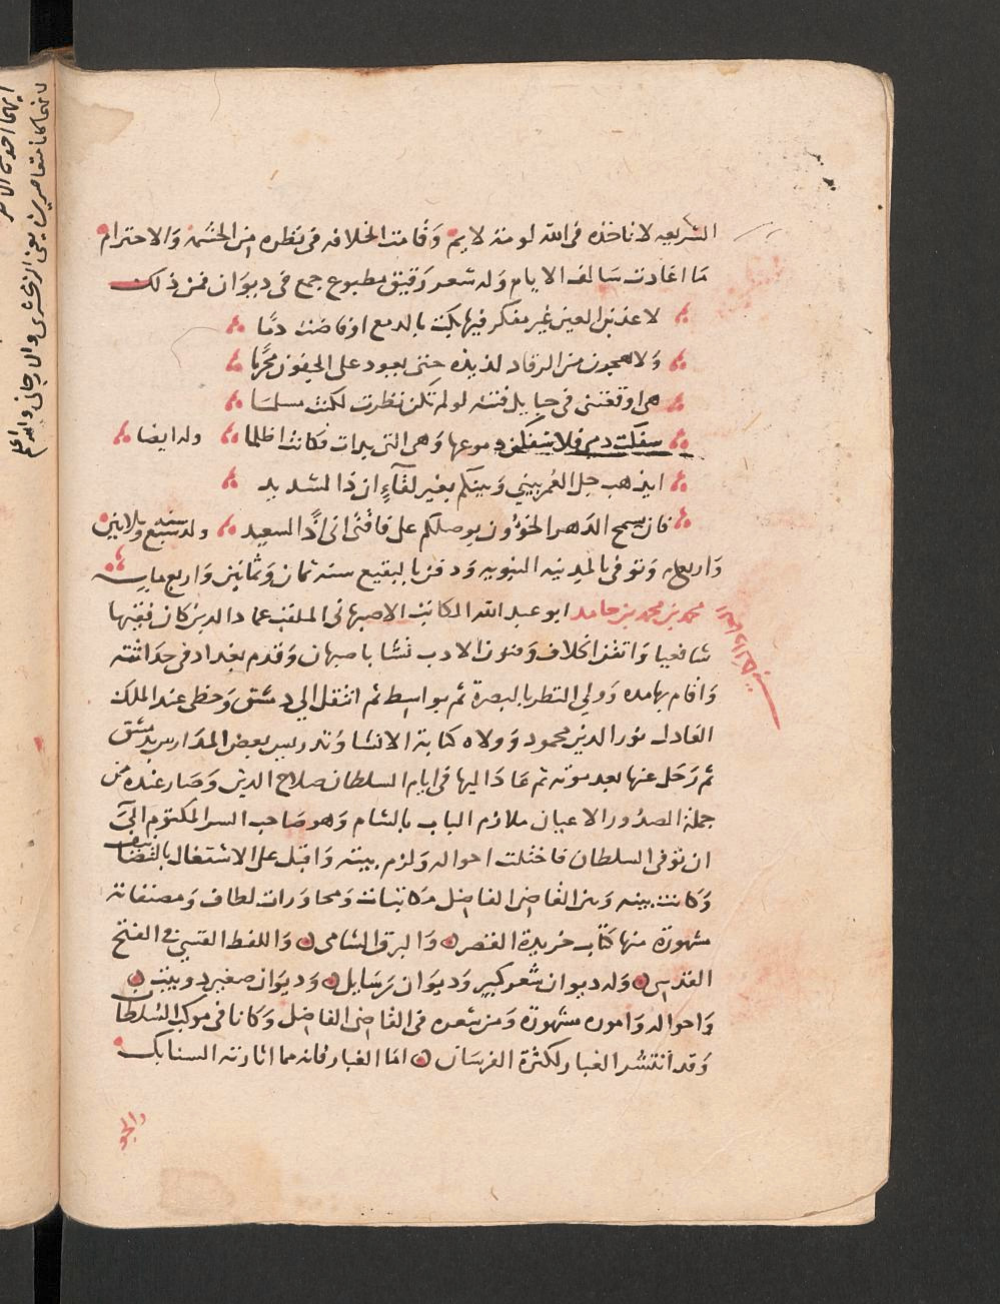 الشريعه لا تاخذه في الله لومة لايم وقامت الخلافه في نظره من الحشمه والاحترام
ما اعادت سالف الايام وله شعر رقيق مطبوع جمع في ديوان فمن ذلك
لاعذبن العين غير مفكر فيها بكت بالدمع او فاضت دما
ولاهجرن من الرقاد لذيذه حتى يعود على الجفون محرما
هي اوقعتني في حبايل فتنه لو لم تكن نظرت لكنت مسلما
سفكت دمي فلاسفكن دموعها وهي التي بدات فكانت اظلما وله ايضا
ايذهب جل العمر بيني وبينكم بغير لقاء ان ذا لشديد
فان يسمح الدهر الخؤون بوصلكم على فاقتى انى اذًا لسعيد ولد سنه سبع وثلاثين
واربعمايه وتوفى بالمدينه النبويه ودفن بالبقيع سنه ثمان وثمانين واربع مايه
محمد بن محمد بن حامد ابو عبد الله الكاتب الاصبهاني الملقب عماد الدين كان فقيها
شافعيا واتقن الخلاف وفنون الادب نشا باصبهان وقدم بغداد في حداثته
واقام بها مده وولي النظر بالبصرة ثم بواسط ثم انتقل الي دمشق وحظى عند الملك
العادل نور الدين محمود وولاه كتابة الانشا وتدريس بعض المدارس بدمشق
ثم رحل عنها بعد موته ثم عاد اليها في ايام السلطان صلاح الدين وصار عنده من
جملة الصدور الاعيان ملازم الباب بالشام وهو صاحب السر المكتوم الى
ان توفى السلطان فاختلت احواله ولزم بيته واقبل على الاشتغال بالتصانيف
وكانت بينه وبين القاضى الفاضل مكاتبات ومحاورات لطاف ومصنفاته
مشهورة منها كتاب خريدة القصر والبرق الشامى واللفظ القسي في الفتح
القدسى وله ديوان شعر كبير وديوان رسايل وديوان صغير دوبيت
واحواله واموره مشهورة ومن شعره في القاضى الفاضل وكانا في موكب السلطان
وقد انتشر الغبار لكثرة الفرسان اما الغبار فانه مما اثارته السنابك
والجو